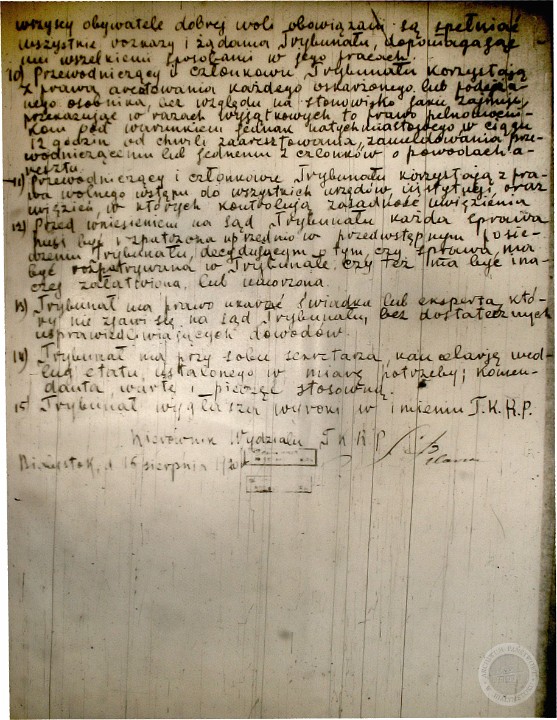 wszyscy obywatele dobrej woli obowiązani są spełniać
wszystkie rozkazy i żądania Trybunału, dopomagając
mu wszelkiemi sposobami w jego pracach.
10) Przewodniczący i członkowie Trybunału korzystają
z prawa aresztowania każdego oskarżonego lub podejrza-
nego osobnika, bez względu na stanowisko jakie zajmuje,
przekazując w razach wyjątkowych to prawo pełnomocni-
kom pod warunkiem jednak natychmiastowego w ciągu
12 godzin od chwili zaaresztowania, zameldowania prze-
wodniczącemu lub jednemu z członków o powodach a-
resztu.
11) Przewodniczący i członkowie Trybunału korzystają z pra-
wa wolnego wstępu do wszystkich urzędów, instytucji oraz
więzień, w których kontrolują zasadność uwięzienia
12) Przed wniesieniem na sąd Trybunału każda sprawa
musi być rozpatrzona uprzednio w przedwstępnym posie-
dzeniu Trybunału, decydującym o tym, czy sprawa ma
być rozpatrywana w Trybunale, czy też ma być ina-
czej załatwiona, lub umorzona.
13) Trybunał ma prawo ukarać świadka lub eksperta, któ-
ry nie zjawi się na sąd Trybunału, bez dostatecznych
usprawiedliwiających dowodów.
14) Trybunał ma przy sobie sekretarza, kancelarję wed-
ług etatu, ustalonego w miarę potrzeby; komen-
danta, wartę i pieczęć stosowną.
15) Trybunał wygłasza wyroki w imieniu T.K.R.P.
Kierownik Wydziału T K R P
Białystok, d 15 sierpnia 1920